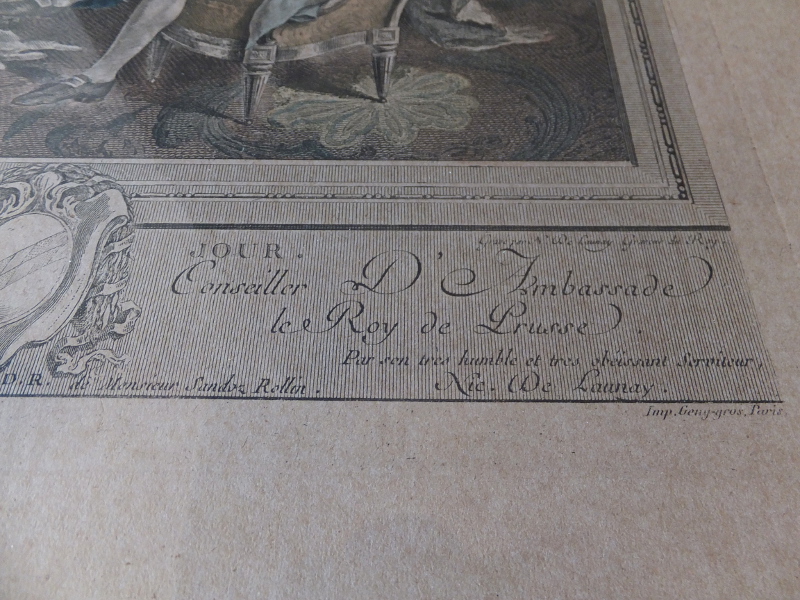 JOUR.
Gravé par N. De Launay Graveur du Roy.
Conseiller D'Ambassade
le Roy de Prusse.
Par son tres humble et tres obéissant Serviteur,
D.R. de Monsieur Sandoz Rollin.
Nic. De Launay.
Imp. Geny-gros, Paris